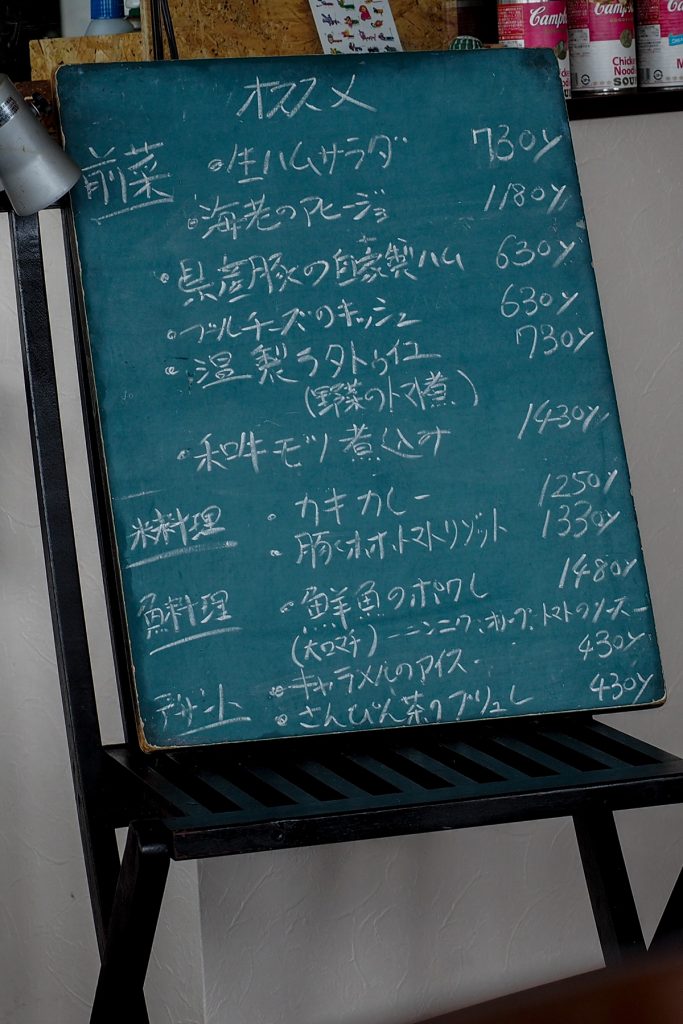 Campb
Campb
Ca
Chicken
Noodl
SOUP
オススメ
前菜
生ハムサラダ 730y
海老のアヒージョ 1180y
県産豚の自家製ハム 630y
ブルーチーズのキッシュ 630y
温製ラタトゥイユ 730y
(野菜のトマト煮)
和牛モツ煮込み 1430y
米料理
カキカレー 1250y
豚とホホ、トマトリゾット 1330y
魚料理
鮮魚のポワレ 1480y
ニンニク、オリーブ、トマトのソース
デザート
キャラメルのアイス 430y
さんぴん茶のブリュレ 430y